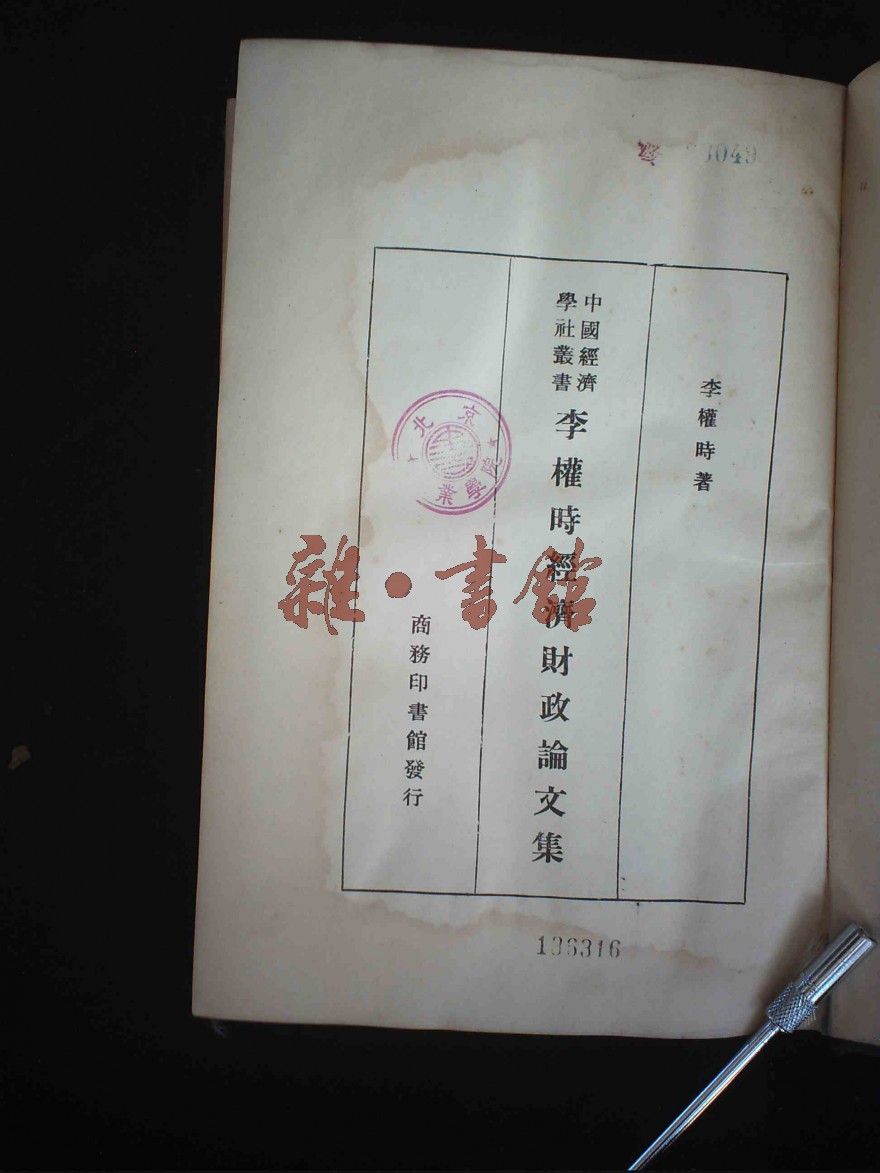 3049
李權時著
中國經濟
學社叢書
李權時經濟財政論文集
商務印書館發行
北京
業學院
雜·書館
136316